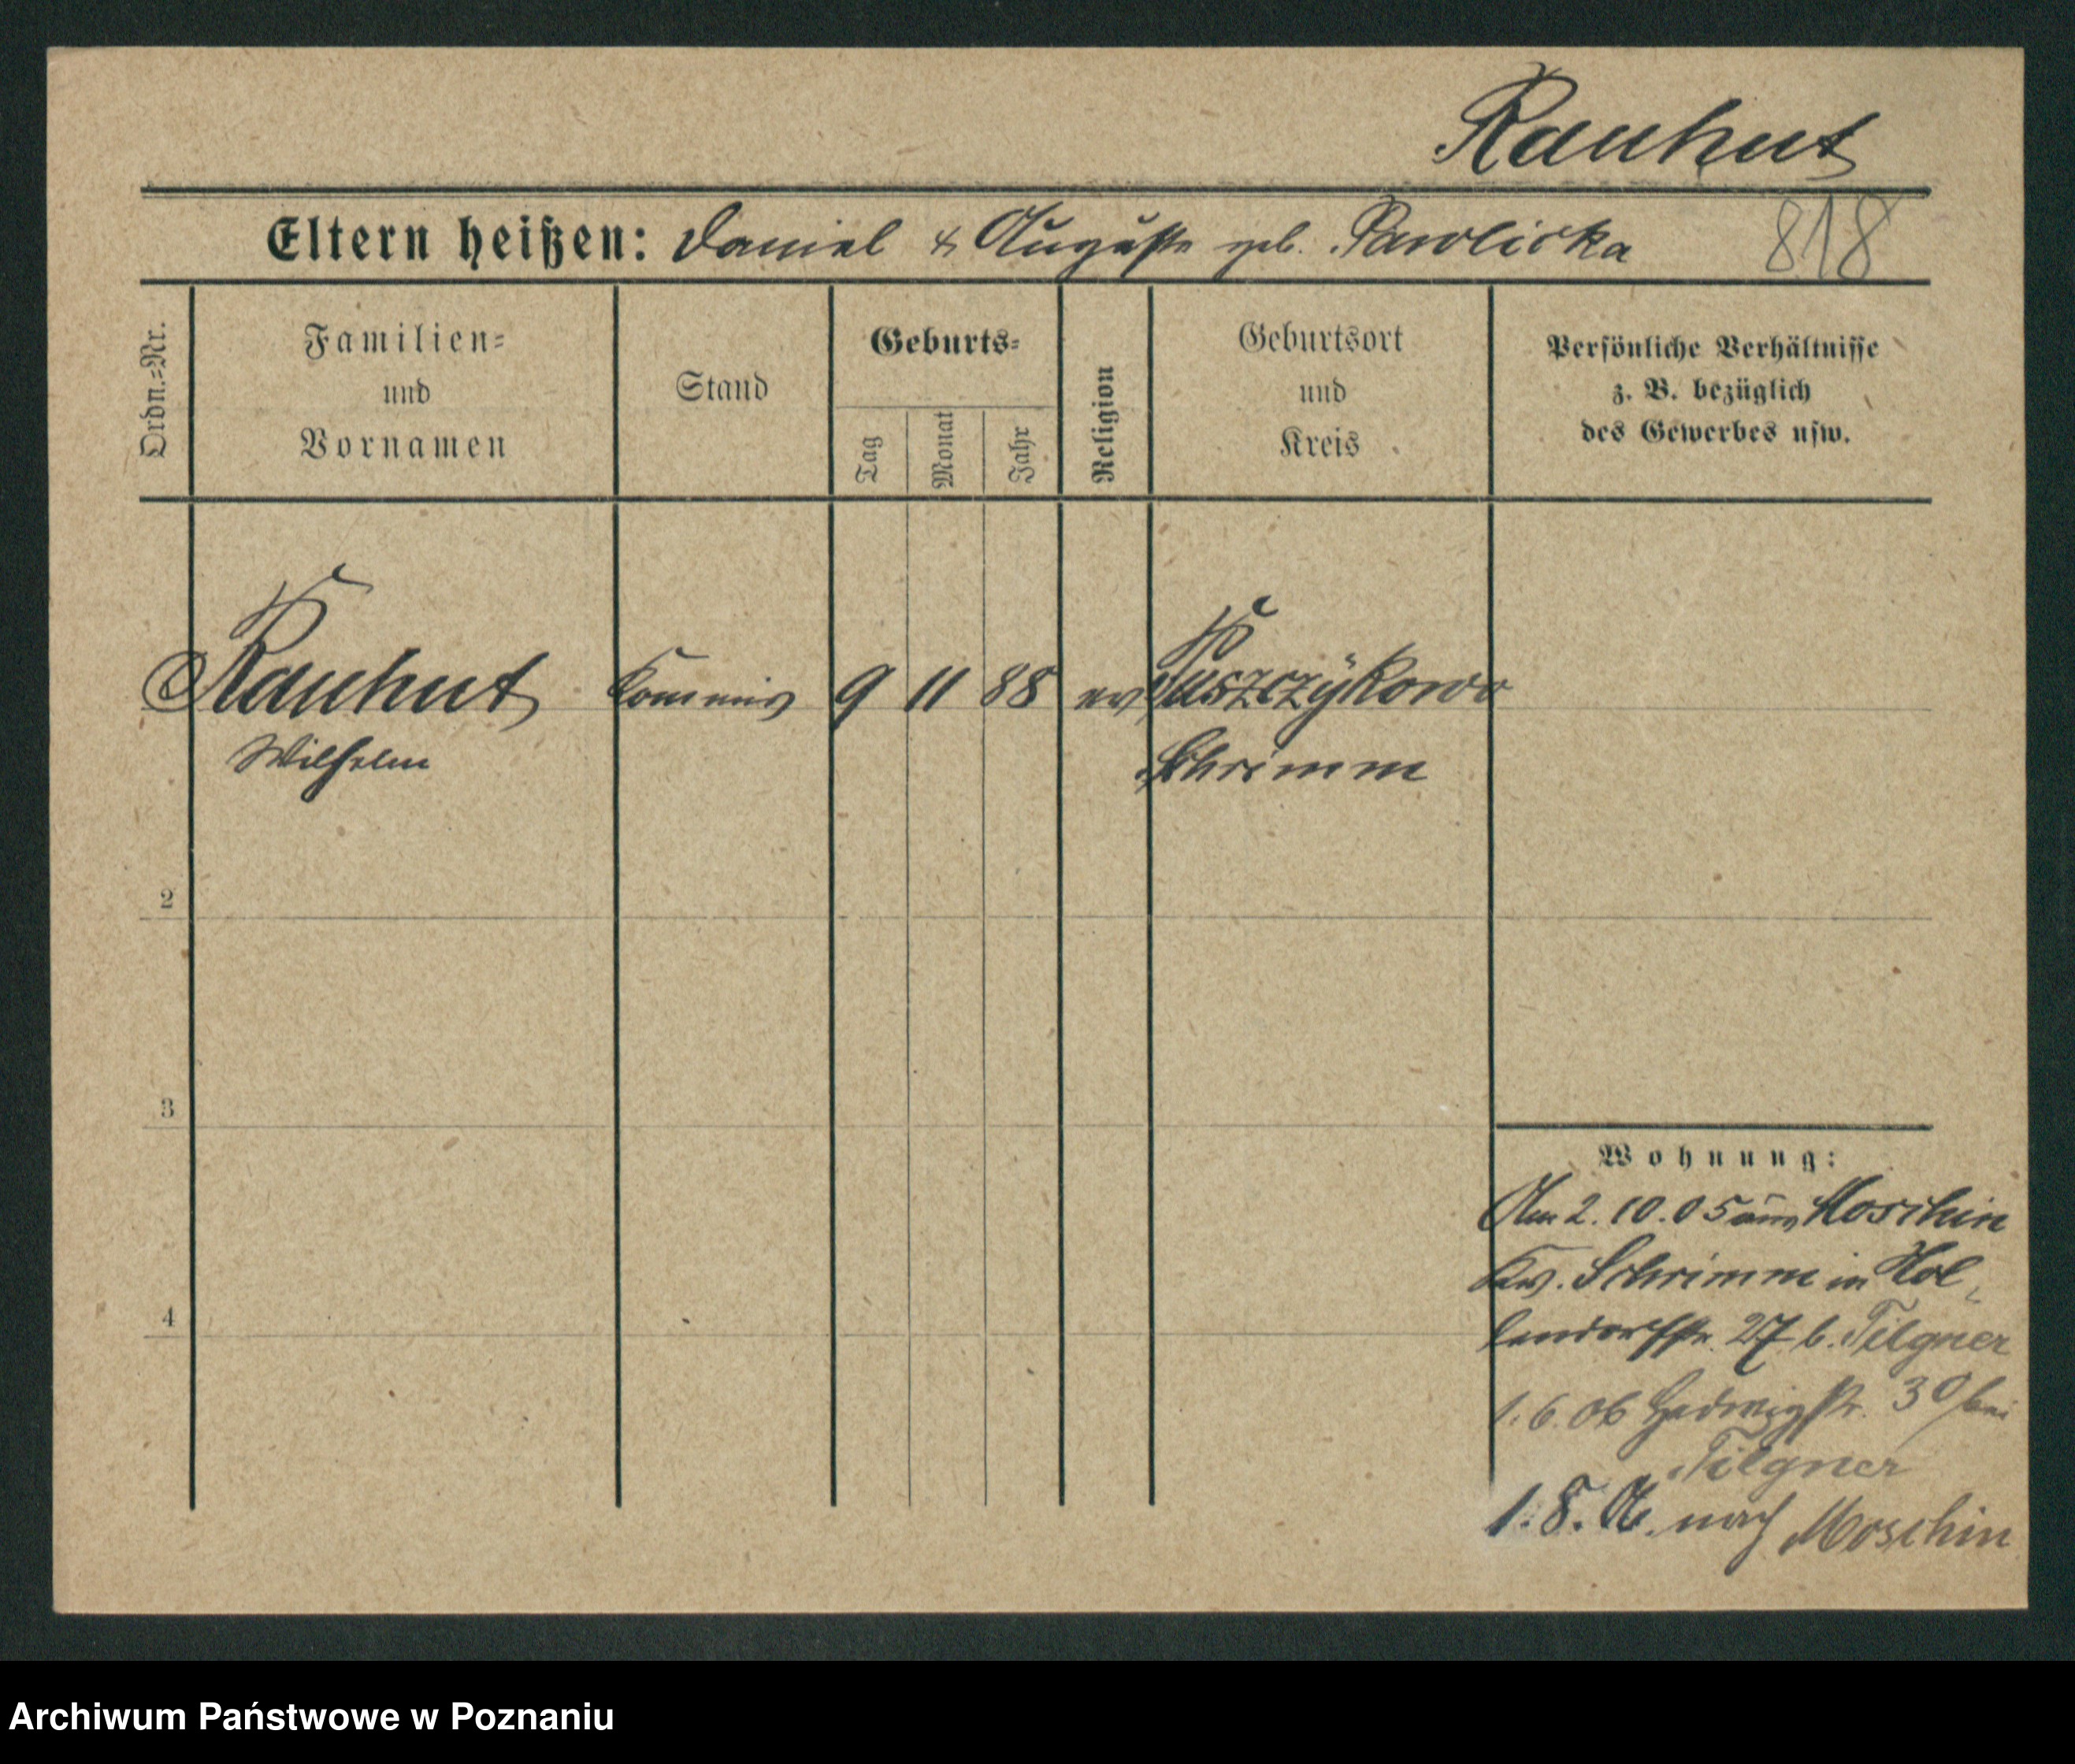 Rauhut
Eltern heißen: Daniel & Auguste geb. Pawlicka 818
Ordn.=Nr.
Familien=
und
Vornamen
Stand
Geburts=
Tag
Monat
Jahr
Religion
Geburtsort
und
Kreis
Persönliche Verhältnisse
z. B. bezüglich
des Gewerbes usw.
Rauhut Kommis 9 11 88 ev Puszczykowo
Wilhelm Schrimm
2
3
4
Wohnung:
Am 2.10.05 aus Moschin
Krs. Schrimm in Hol-
lendorffstr. 27 b. Tilgner
1.6.06 Hedwigstr. 30 bei
Tilgner
1.8.06 nach Moschin
Archiwum Państwowe w Poznaniu